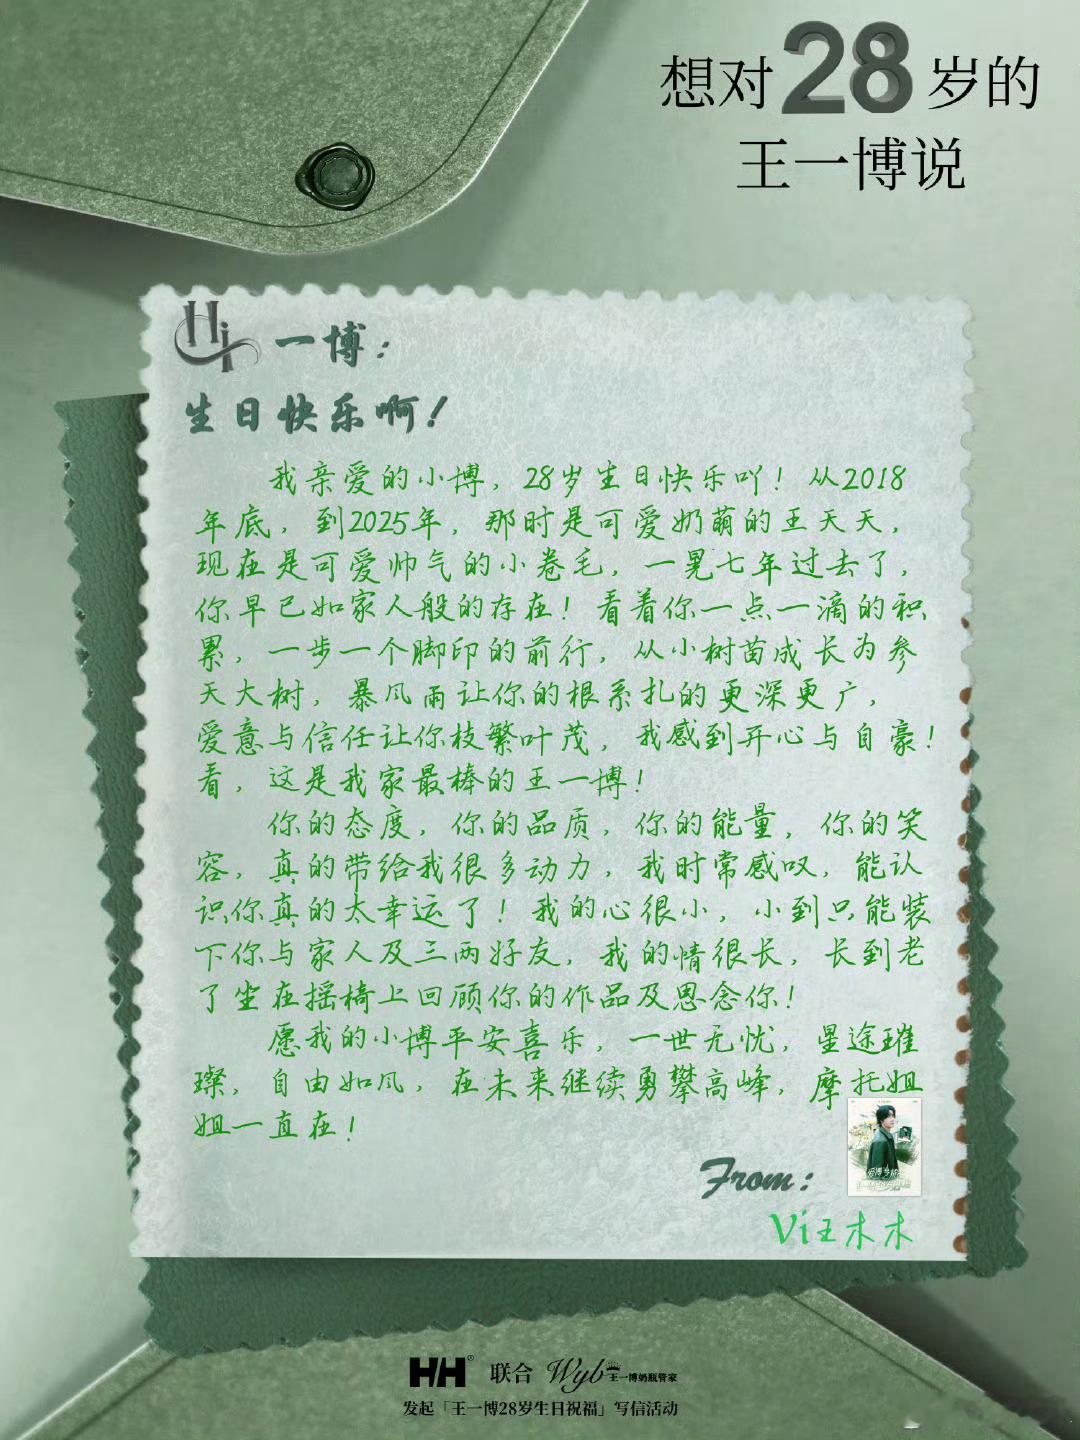 想对28岁的
王一博说
Hi 一博：
生日快乐啊！
我亲爱的小博，28岁生日快乐吖！从2018
年底，到2025年，那时是可爱奶萌的王天天，
现在是可爱帅气的小卷毛，一晃七年过去了，
你早已如家人般的存在！看着你一点一滴的积
累，一步一个脚印的前行，从小树苗成长为参
天大树，暴风雨让你的根系扎的更深更广，
爱意与信任让你枝繁叶茂，我感到开心与自豪！
看，这是我家最棒的王一博！
你的态度，你的品质，你的能量，你的笑
容，真的带给我很多动力，我时常感叹，能认
识你真的太幸运了！我的心很小，小到只能装
下你与家人及三两好友，我的情很长，长到老
了坐在摇椅上回顾你的作品及思念你！
愿我的小博平安喜乐，一世无忧，星途璀
璨，自由如风，在未来继续勇攀高峰，摩托姐
姐一直在！
From：
Vi王木木
HH® 联合 Wyb 王一博奶瓶管家
发起「王一博28岁生日祝福」写信活动